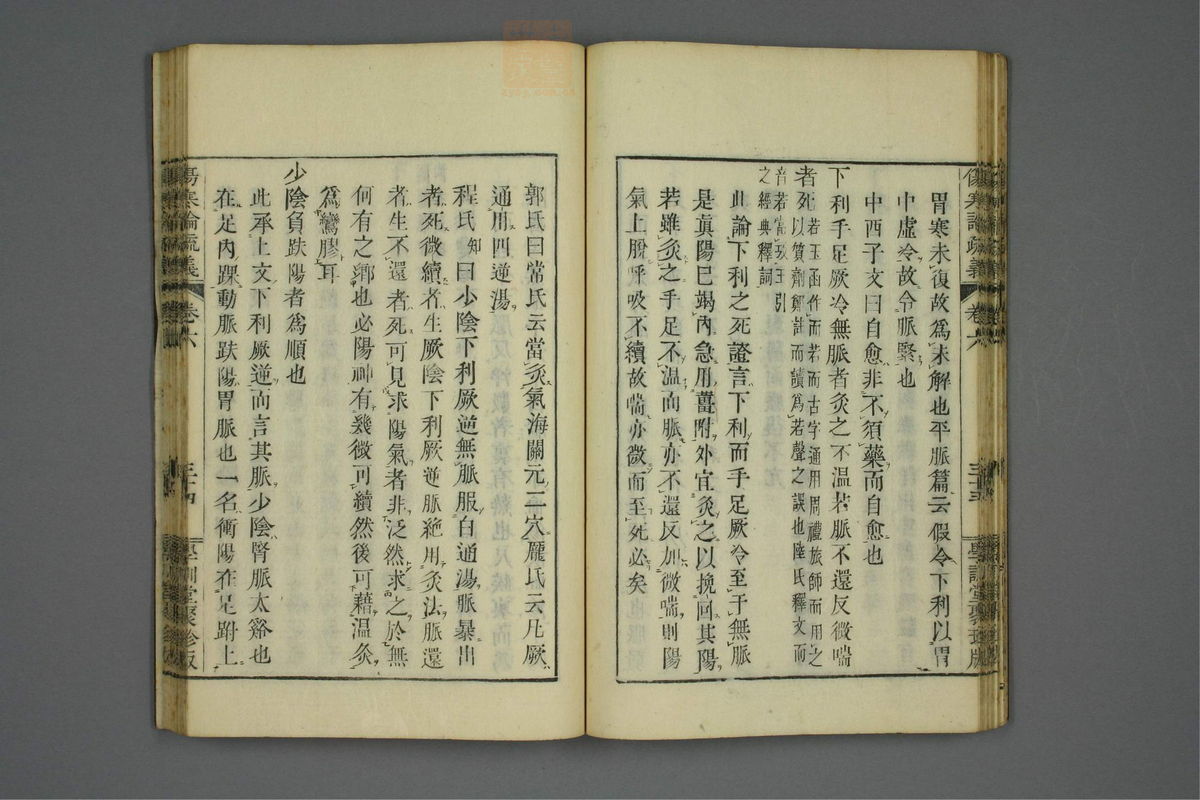 傷寒論疏義
卷六
三十四
學訓堂聚珍版
胃寒未復故爲未解也平脈篇云假令下利以胃
中虛冷故令脈緊也
中西子文曰自愈非不須藥而自愈也
下利手足厥冷無脈者灸之不溫若脈不還反微喘
者死若玉函作而若而古字通用周禮旅師而用之以質劑鄭註而讀爲若聲之誤也陸氏釋文而
音若當攷王引之經典釋詞
此論下利之死證言下利而手足厥冷至于無脈
是眞陽已竭內急用薑附外宜灸之以挽回其陽
若雖灸之手足不溫而脈亦不還反加微喘則陽
氣上脫呼吸不續故喘亦微而至死必矣
郭氏曰常氏云當灸氣海關元二穴龐氏云凡厥
通用四逆湯
程氏知曰少陰下利厥逆無脈服白通湯脈暴出
者死微續者生厥陰下利厥逆脈絕用灸法脈還
者生不還者死可見求陽氣者非泛然求之於無
何有之鄉也必陽神有幾微可續然後可藉溫灸
爲鸞膠耳
少陰負趺陽者爲順也
此承上文下利厥逆而言其脈少陰腎脈太谿也
在足內踝動脈趺陽胃脈也一名衝陽在足跗上
傷寒論疏義
卷六
三十四
學訓堂聚珍版